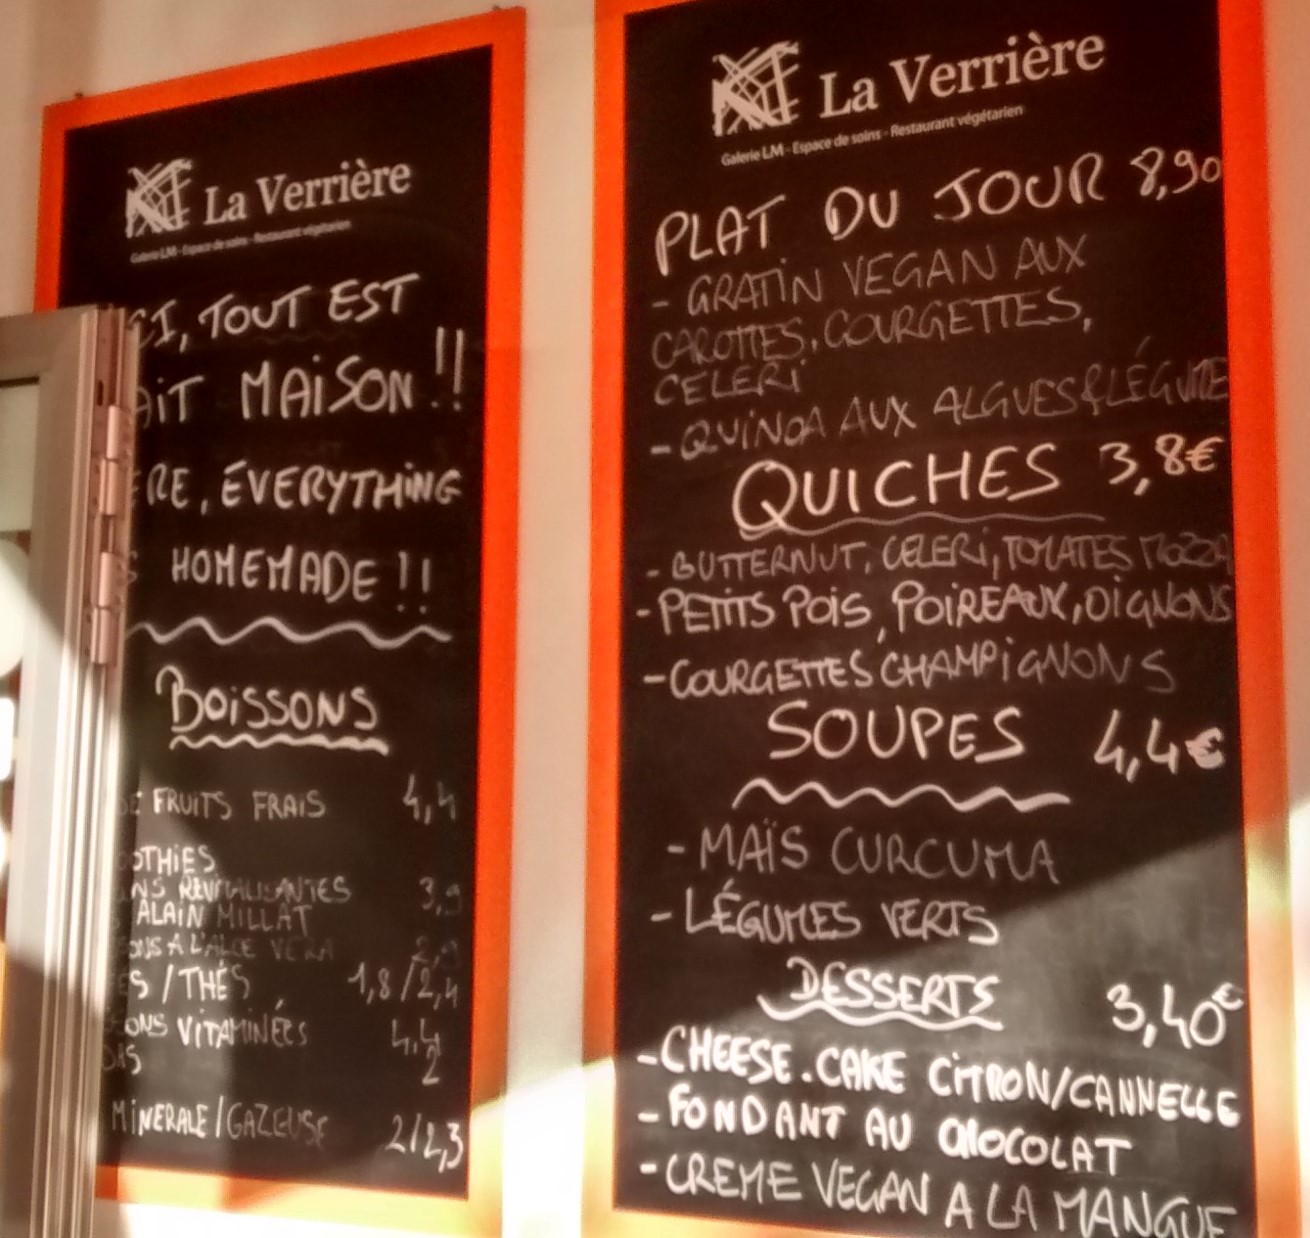 La Verrière
Galerie LM - Espace de soins - Restaurant végétarien
CI, TOUT EST
AIT MAISON !!
RE, EVERYTHING
S HOMEMADE !!
BOISSONS
DE FRUITS FRAIS 4,4
OTHIES
NS REVITALISANTES 3,9
ALAIN MILLAT
ONS A L'ALOE VERA 2,9
ES / THÉS 1,8 / 2,4
ONS VITAMINÉES 4,4
DAS 2
MINERALE / GAZEUSE 2/2,3
La Verrière
Galerie LM - Espace de soins - Restaurant végétarien
PLAT DU JOUR 8,90
- GRATIN VEGAN AUX
CAROTTES, COURGETTES,
CELERI
- QUINOA AUX ALGUES & LÉGUME
QUICHES 3,8€
- BUTTERNUT, CELERI, TOMATES MOZZA
- PETITS POIS, POIREAUX, OIGNONS
- COURGETTES CHAMPIGNONS
SOUPES 4,4€
- MAÏS CURCUMA
- LÉGUMES VERTS
DESSERTS 3,40€
- CHEESE.CAKE CITRON/CANNELLE
- FONDANT AU CHOCOLAT
- CREME VEGAN A LA MANGUE